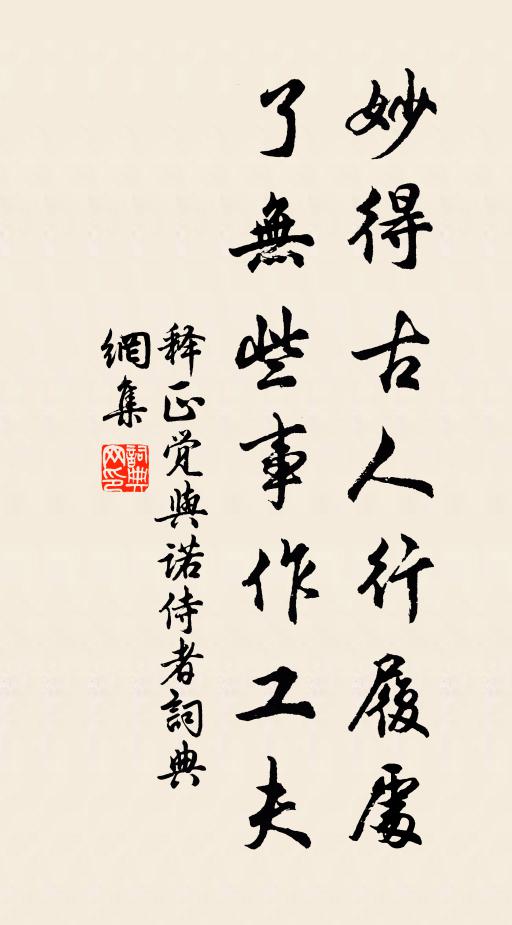 妙得古人行履處
了無些事作工夫
释正觉與諾侍者詞典
網集
詞典网印